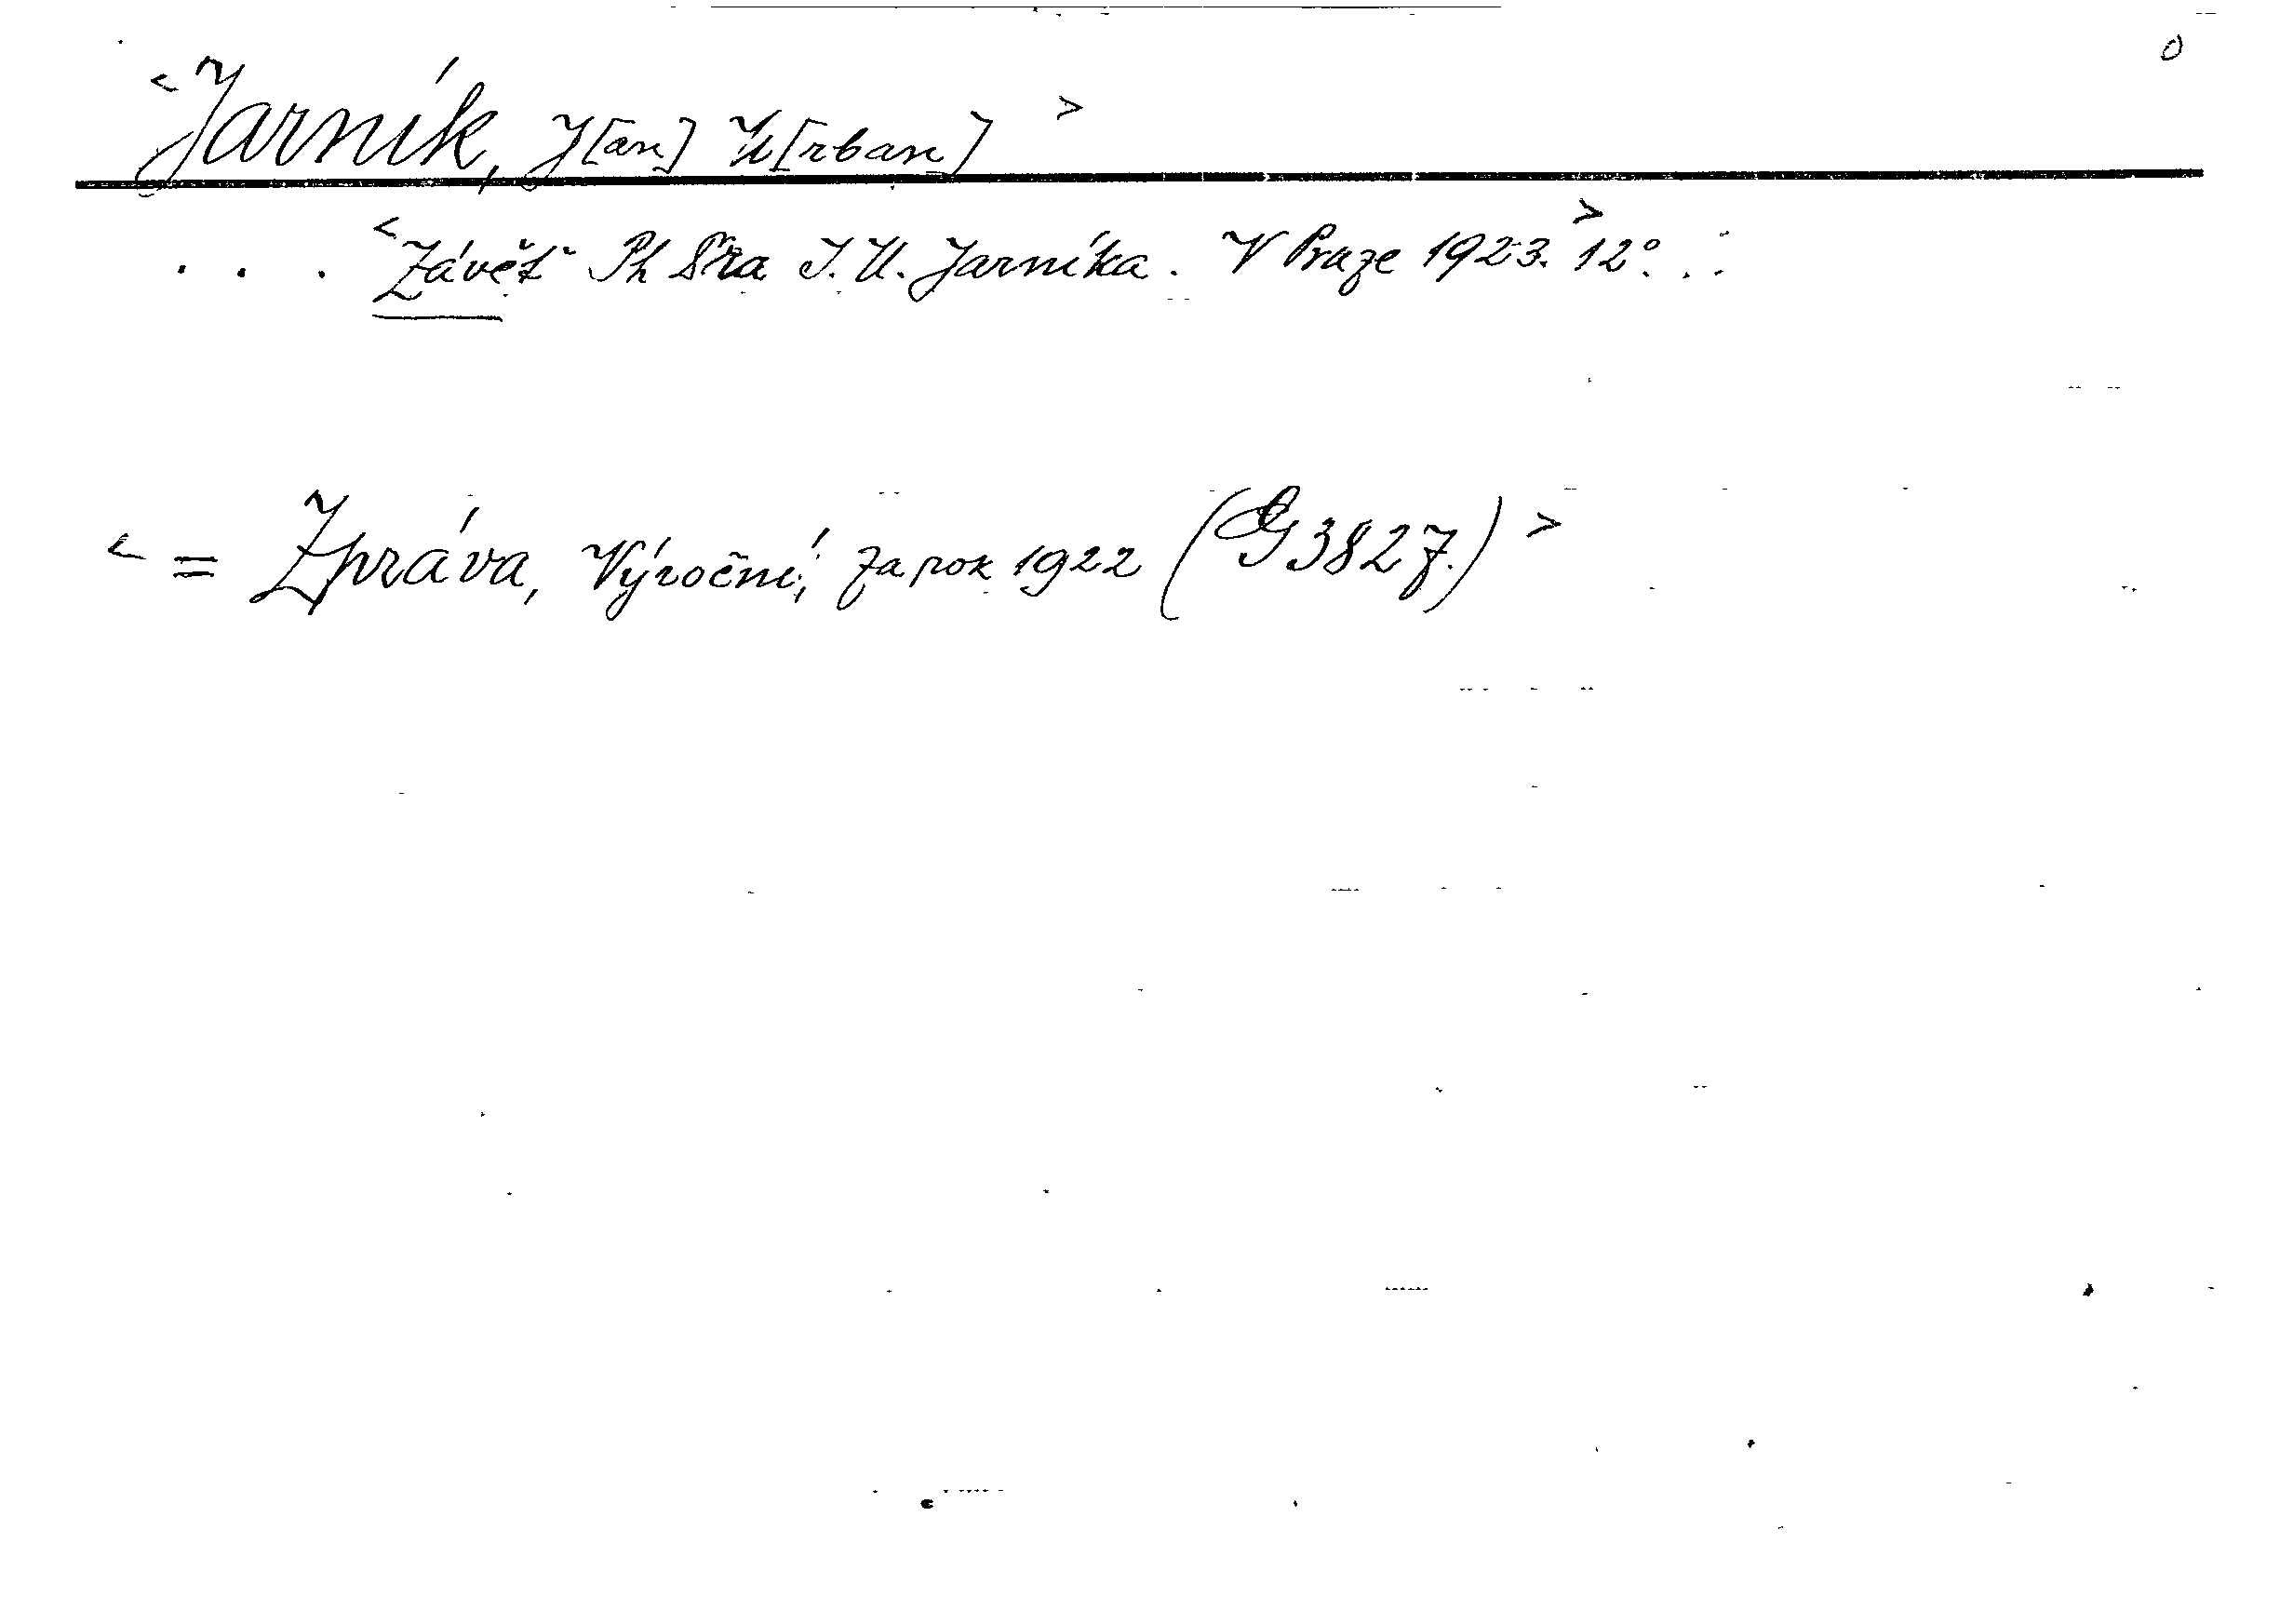 0
<Jarník, J[an] U[rban]>
. . . <Závěť Ph Dra J. U. Jarníka. V Praze 1923.> 12° . .
<= Zpráva, Výroční, za rok 1922 (G 3827.)>